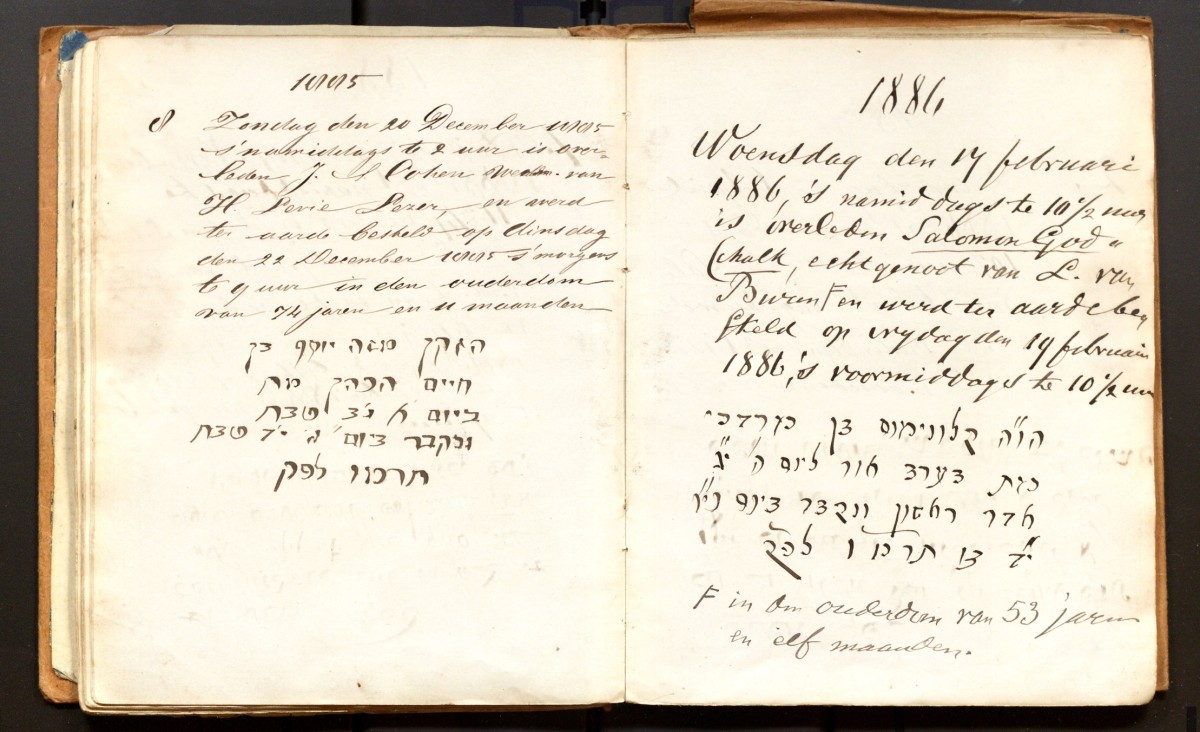 1885
8 Zondag den 20 December 1885
s'namiddags te 2 uur is over=
leden J. S Cohen van
H. Levie Lezer, en werd
ter aarde besteld op dinsdag
den 22 December 1885 s'morgens
te 9 uur in den ouderdom
van 74 jaren en 11 maanden
הזקן משה יוסף בן
חיים הכהן מת
ביום א' י"ב טבת
ונקבר ביום ג' י"ד טבת
תרמו לפק
1886
Woensdag den 17 februari
1886, 's namiddags te 10 1/2 uur
is overleden Salomon God"
schalk, echtgenoot van L. van
Buren F en werd ter aarde be"
steld op vrydag den 19 februari
1886, 's voormiddags te 10 1/2 uur
הו"ה קלונימוס בן מרדכי
מת בערב אור ליום ה' י"ג
אדר ראשון ונקבר ביום
י"ד בו תרמו לפק
F in den ouderdom van 53 jaren
en elf maanden.